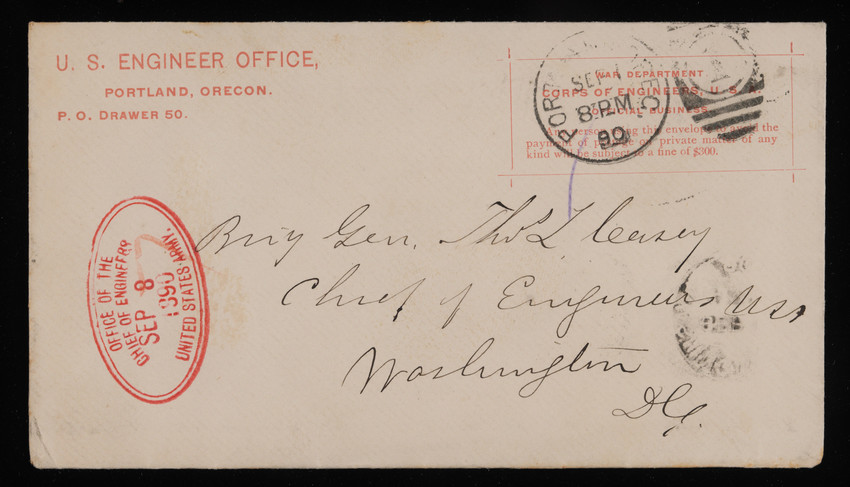 U. S. ENGINEER OFFICE,
PORTLAND, ORECON.
P. O. DRAWER 50.
WAR DEPARTMENT
CORPS OF ENGINEERS, U. S. A.
OFFICIAL BUSINESS.
Any person using this envelope to avoid the
payment of postage on private matter of any
kind will be subject to a fine of $300.
PORTLAND OREG
SEP
8 PM
90
Brig Gen. Thos L Casey
Chief of Engineers USA
Washington
D.C.
OFFICE OF THE
CHIEF OF ENGINEERS
SEP 8
1890
UNITED STATES ARMY.